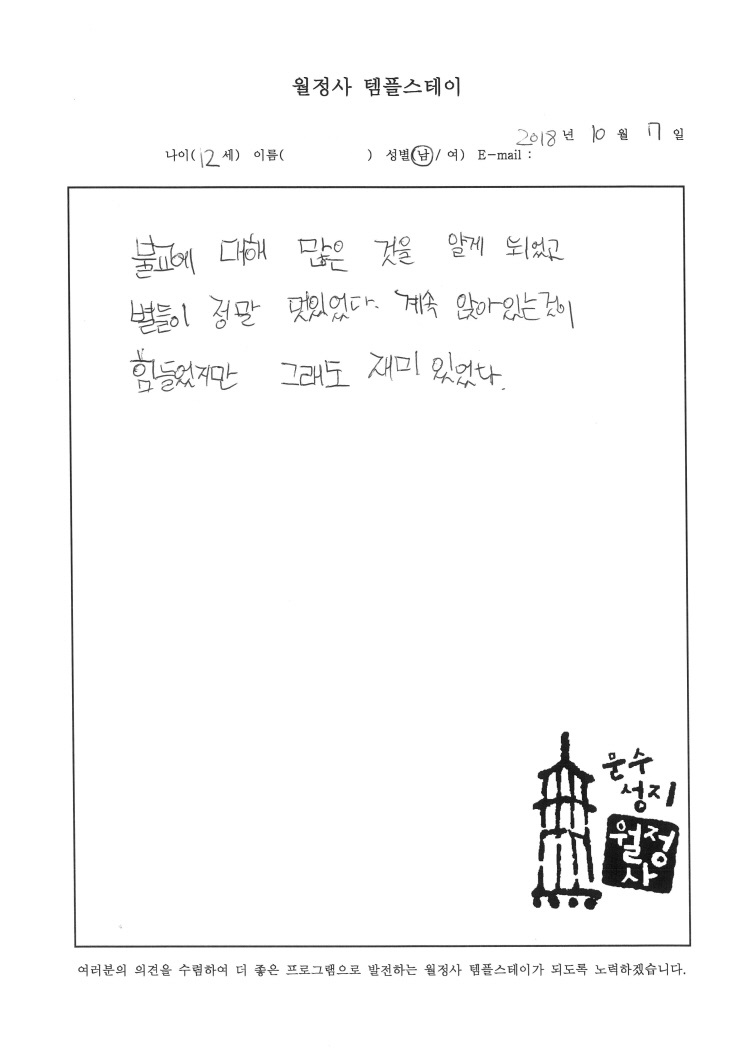 월정사 템플스테이
2018년 10월 17일
나이(12세) 이름( ) 성별(남/여) E-mail :
불교에 대해 많은 것을 알게 되었고
별들이 정말 멋있었다. 계속 앉아있는것이
힘들었지만 그래도 재미 있었다.
문수
성지
월정
사
여러분의 의견을 수렴하여 더 좋은 프로그램으로 발전하는 월정사 템플스테이가 되도록 노력하겠습니다.